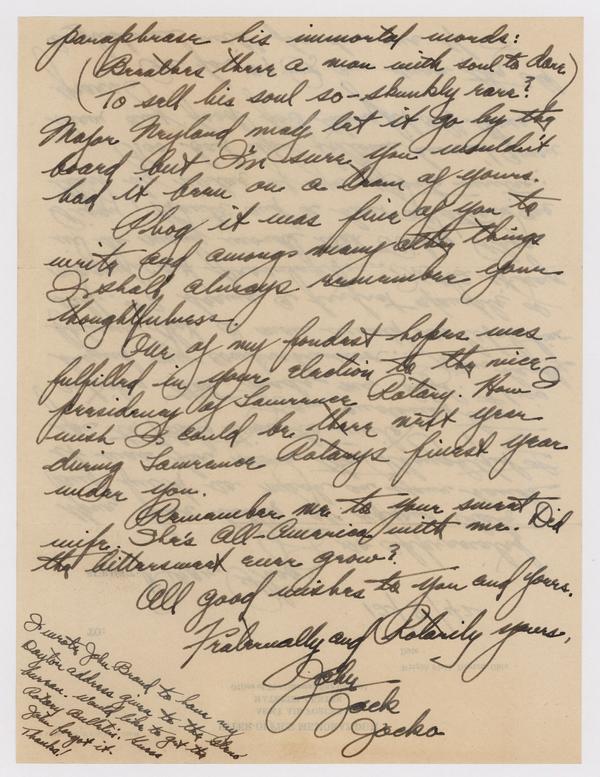 paraphrase his immortal words:
(Breathes there a man with soul to dare)
(To sell his soul so-skunkly rare?)
Major Neyland may let it go by the
board but I'm sure you wouldn't
had it been on a team of yours.
Phog it was fine of you to
write and amongst many other things
I shall always remember your
thoughtfulness.
One of my fondest hopes was
fulfilled in your election to the vice-
presidency of Lawrence Rotary. How I
wish I could be there next year
during Lawrence Rotarys finest year
under you.
Remember me to your sweet
wife. She's all-America with me. Did
the bittersweet ever grow?
All good wishes to you and yours.
Fraternally and Rotarily yours,
John
Jack
Jocko
I wrote John Brand to have my
Dayton address given to the
bureau. Would like to get the
Rotary Bulletin. Guess
John forgot it.
Thanks!